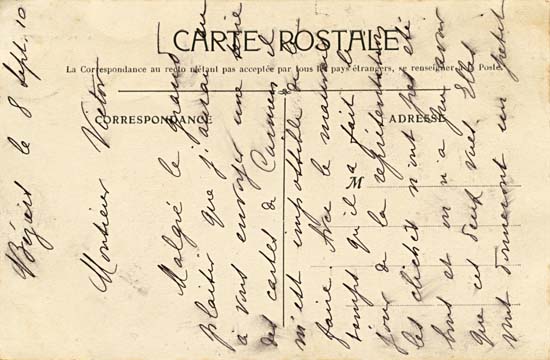 CARTE POSTALE
La Correspondance au recto n'étant pas acceptée par tous les pays étrangers, se renseigner à la Poste.
CORRESPONDANCE
ADRESSE
M
Béziers le 8 Sept. 10
Monsieur Victor
Malgré le grand
plaisir que j'aurai eu
à vous envoyer une série
des cartes de Carmen il
m'est impossible de le
faire. Avec le mauvais
temps qu'il a fait le
jour de la représentation
les clichés n'ont pas été
bons et on n'a pu avoir
que ces deux vues. Elles
vous donneront un petit